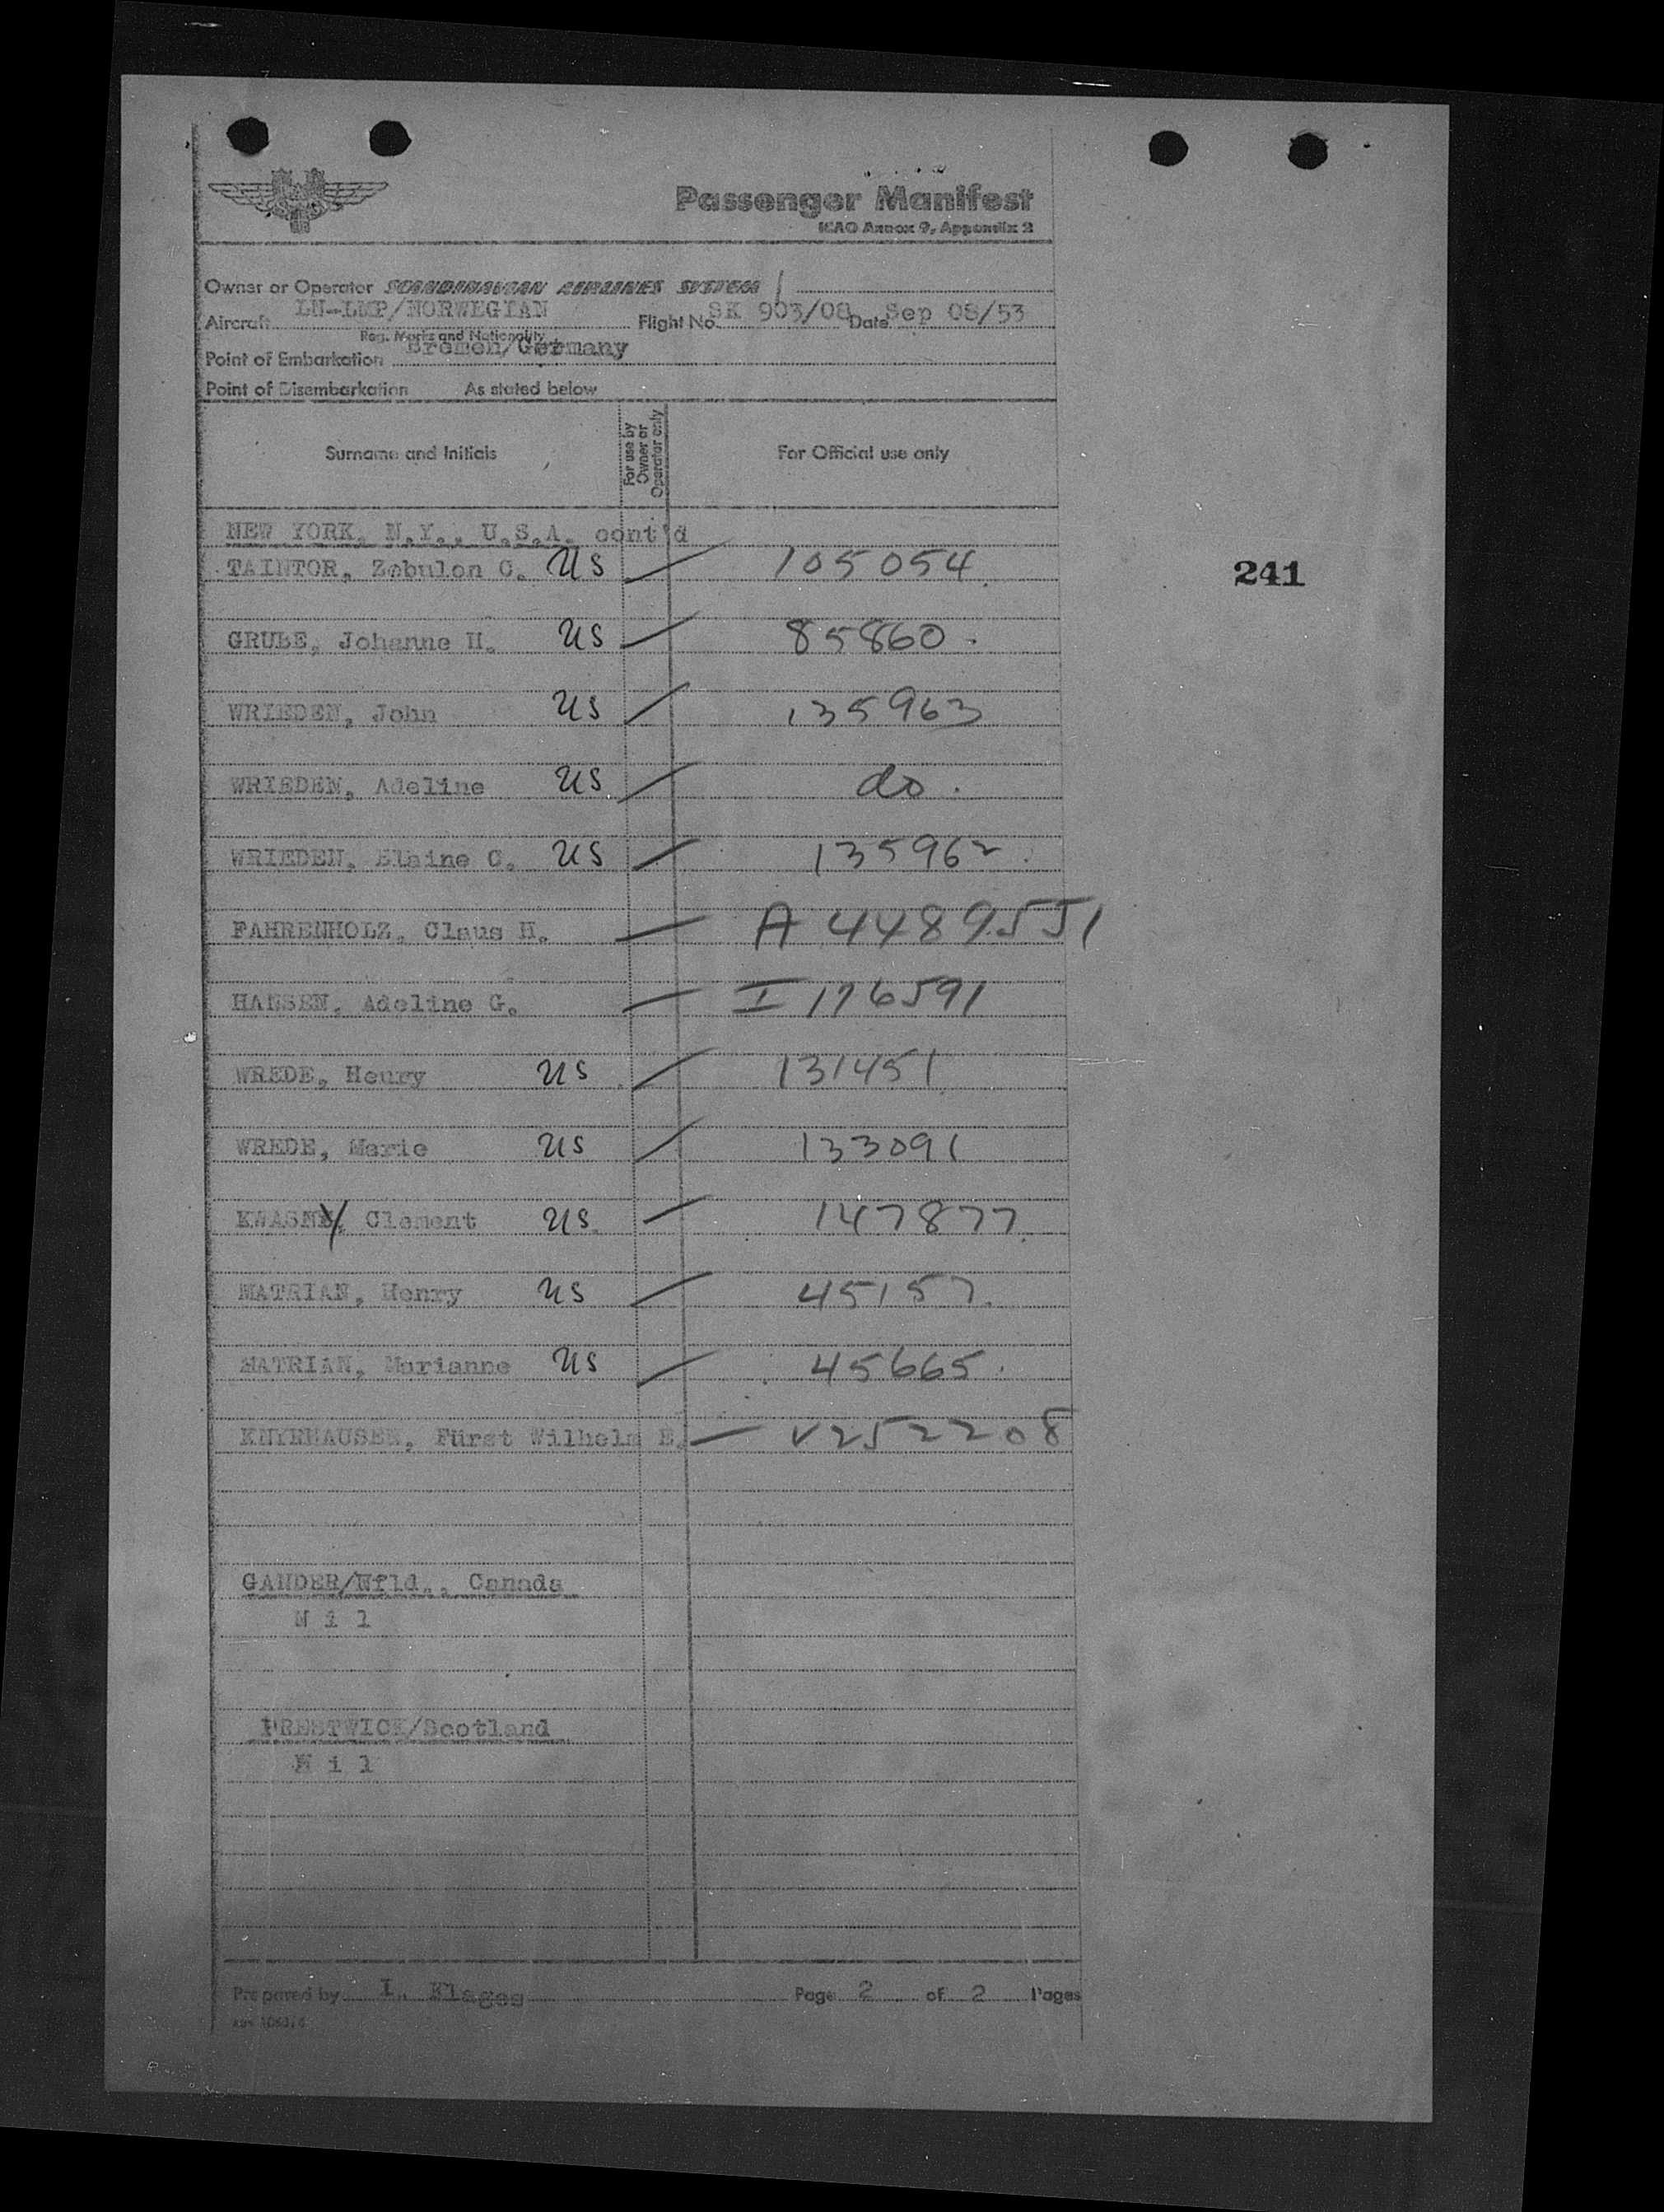 Passenger Manifest
ICAO Annex 9, Appendix 2
Owner or Operator SCANDINAVIAN AIRLINES SYSTEM
Aircraft LN-LMP/NORWEGIAN Flight No. SK 903/08 Date Sep 08/53
Reg. Marks and Nationality
Point of Embarkation Bremen/Germany
Point of Disembarkation As stated below
Surname and Initials For use by Owner or Operator only For Official use only
NEW YORK, N.Y., U.S.A. cont'd
TAINTOR, Zebulon C. US 105054
241
GRUBE, Johanne H. US 85860.
WRIEDEN, John US 135963
WRIEDEN, Adeline US do.
WRIEDEN, Elaine C. US 135962.
FAHRENHOLZ, Claus H. A 4489551
HANSEN, Adeline G. I 176591
WREDE, Henry US 131451
WREDE, Marie US 133091
KWASNY, Clement US 147877
MATRIAN, Henry US 45157.
MATRIAN, Marianne US 45665.
KNYPHAUSEN, Fürst Wilhelm E. V252208
GANDER/Nfld., Canada
N i l
PRESTWICK/Scotland
N i l
Prepared by I. Klages Page 2 of 2 Pages